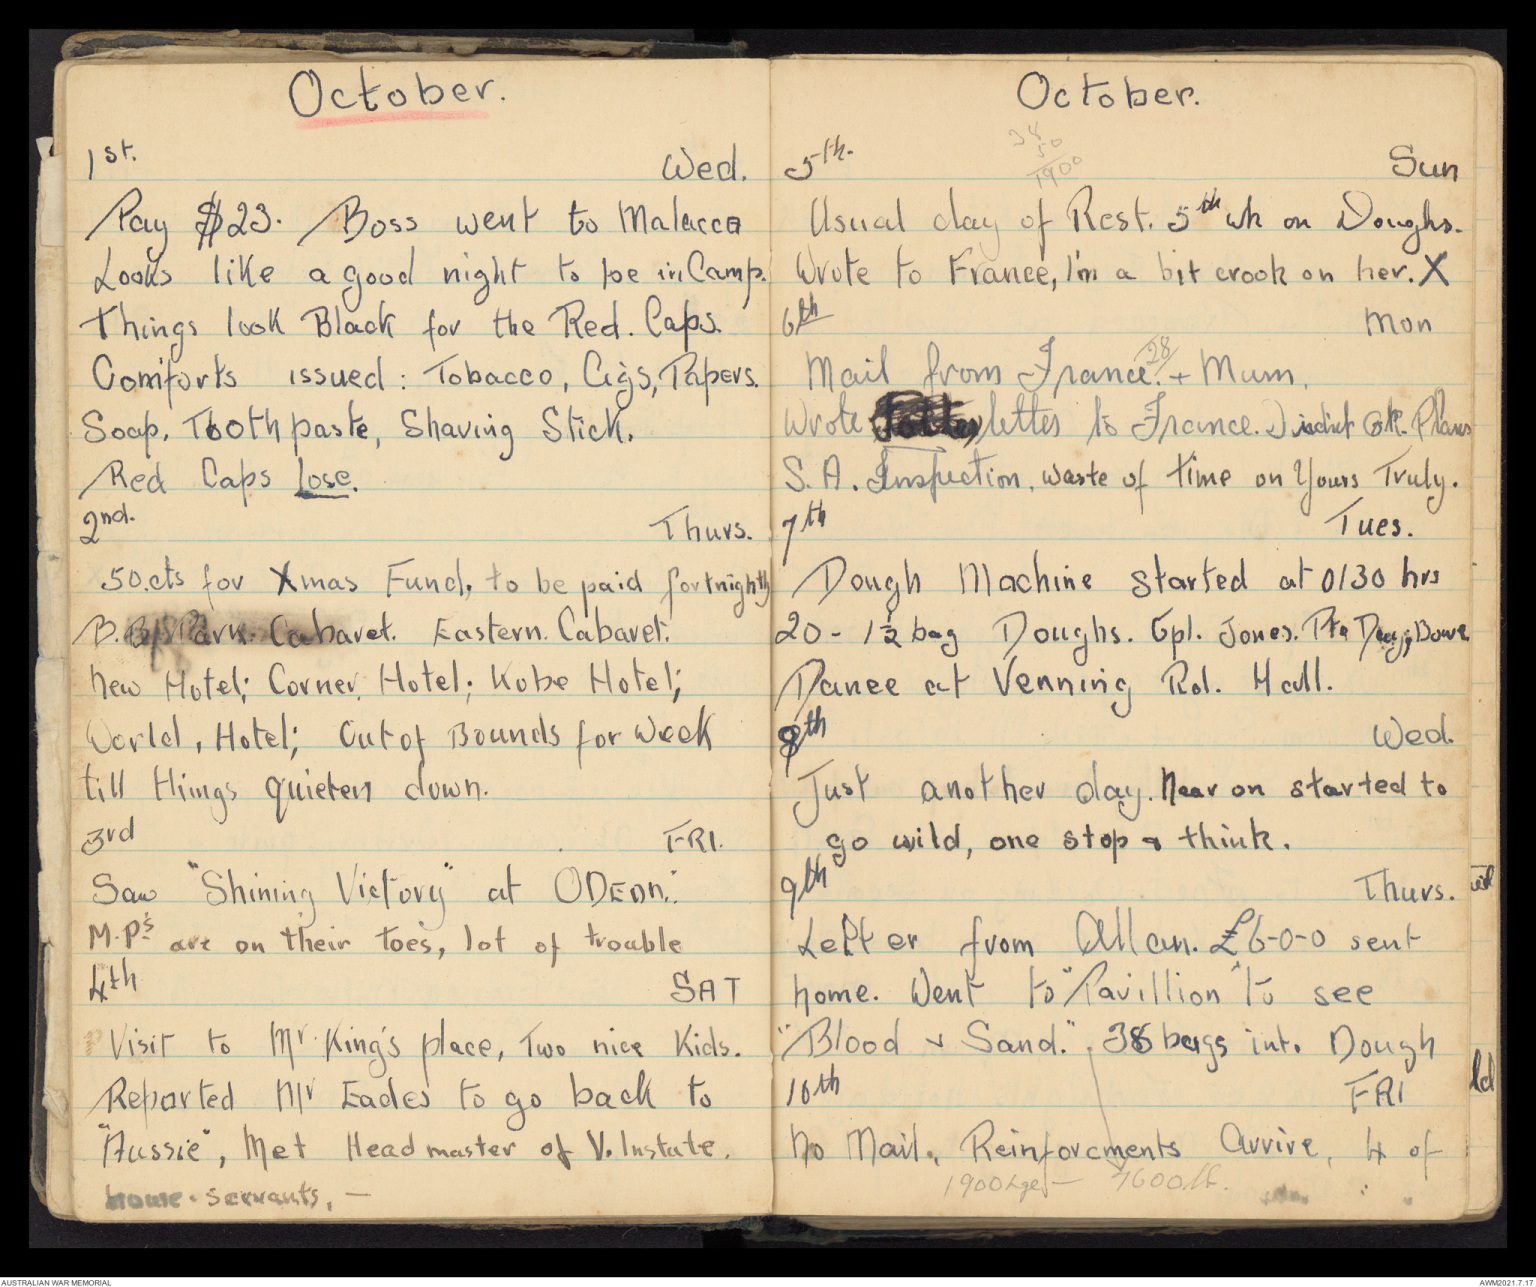 October.
1st. Wed.
Pay $23. Boss went to Malacca
Looks like a good night to be in Camp.
Things look Black for the Red. Caps.
Comforts issued: Tobacco, Cigs, Papers.
Soap, Tooth paste, Shaving Stick.
Red Caps Lose.
2nd. Thurs.
50.cts for Xmas Fund, to be paid fortnightly
B. Park. Cabaret. Eastern. Cabaret.
New Hotel; Corner. Hotel; Kobe Hotel;
World, Hotel; Out of Bounds for Week
till things quieten down.
3rd FRI.
Saw "Shining Victory" at ODEON.
M.P's are on their toes, lot of trouble
4th SAT
Visit to Mr King's place, Two nice Kids.
Reported Mr Eades to go back to
"Aussie", Met Headmaster of V. Instate.
house. servants, —
October.
38
50
1900
5th. Sun
Usual day of Rest. 5th wk on Doughs.
Wrote to France, I'm a bit crook on her. X
6th Mon
28
Mail from France. + Mum.
Wrote letter to France. Planes
S.A. Inspection, waste of time on Yours Truly.
7th Tues.
Dough Machine started at 0130 hrs
20 - 1½ bag Doughs. Cpl. Jones. Pte
Dance at Venning Rd. Hall.
8th Wed.
Just another day. Near on started to
go wild, one stop & think.
9th Thurs.
Letter from Allan. £6-0-0 sent
home. Went to "Pavillion" to see
"Blood & Sand." 38 bags int. Dough
10th FRI
No Mail. Reinforcments Arrive, 4 of
1900
ld
AUSTRALIAN WAR MEMORIAL
AWM2021.7.17